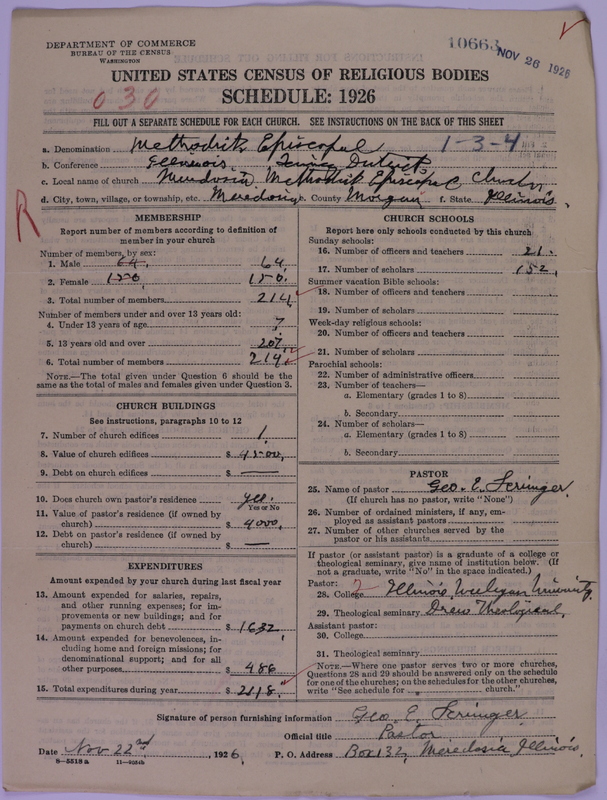 DEPARTMENT OF COMMERCE
BUREAU OF THE CENSUS
WASHINGTON
10663
NOV 26 1926
UNITED STATES CENSUS OF RELIGIOUS BODIES
SCHEDULE: 1926
030
FILL OUT A SEPARATE SCHEDULE FOR EACH CHURCH. SEE INSTRUCTIONS ON THE BACK OF THIS SHEET
a. Denomination Methodist Episcopal 1-3-4
b. Conference Illinois
c. Local name of church Methodist Episcopal Church
d. City, town, village, or township, etc. e. County Morgan f. State Illinois.
R
MEMBERSHIP
Report number of members according to definition of member in your church
Number of members, by sex:
1. Male 64. 64.
2. Female 150 150.
3. Total number of members 214.
Number of members under and over 13 years old:
4. Under 13 years of age 7
5. 13 years old and over 207
6. Total number of members 214.
NOTE.—The total given under Question 6 should be the same as the total of males and females given under Question 3.
CHURCH BUILDINGS
See instructions, paragraphs 10 to 12
7. Number of church edifices 1.
8. Value of church edifices $
9. Debt on church edifices $ —
10. Does church own pastor's residence yes.
Yes or No
11. Value of pastor's residence (if owned by church) $ 4000.
12. Debt on pastor's residence (if owned by church) $ —
EXPENDITURES
Amount expended by your church during last fiscal year
13. Amount expended for salaries, repairs, and other running expenses; for improvements or new buildings; and for payments on church debt $ 1632.
14. Amount expended for benevolences, including home and foreign missions; for denominational support; and for all other purposes $ 486
15. Total expenditures during year $ 2118.
CHURCH SCHOOLS
Report here only schools conducted by this church
Sunday schools:
16. Number of officers and teachers 21.
17. Number of scholars 152.
Summer vacation Bible schools:
18. Number of officers and teachers
19. Number of scholars
Week-day religious schools:
20. Number of officers and teachers
21. Number of scholars
Parochial schools:
22. Number of administrative officers
23. Number of teachers—
a. Elementary (grades 1 to 8)
b. Secondary
24. Number of scholars—
a. Elementary (grades 1 to 8)
b. Secondary
PASTOR
25. Name of pastor Geo. E. Scringer.
(If church has no pastor, write "None")
26. Number of ordained ministers, if any, employed as assistant pastors
27. Number of other churches served by the pastor or his assistants
If pastor (or assistant pastor) is a graduate of a college or theological seminary, give name of institution below. (If not a graduate, write "No" in the space indicated.)
Pastor:
28. College Illinois Wesleyan University.
29. Theological seminary Drew Theological.
Assistant pastor:
30. College
31. Theological seminary
NOTE.—Where one pastor serves two or more churches, Questions 28 and 29 should be answered only on the schedule for one of the churches; on the schedules for the other churches, write "See schedule for church."
Signature of person furnishing information Geo. E. Scringer
Official title Pastor
Date Nov 22nd, 1926 P. O. Address Box 132, Meredosia Illinois.
8—5518a